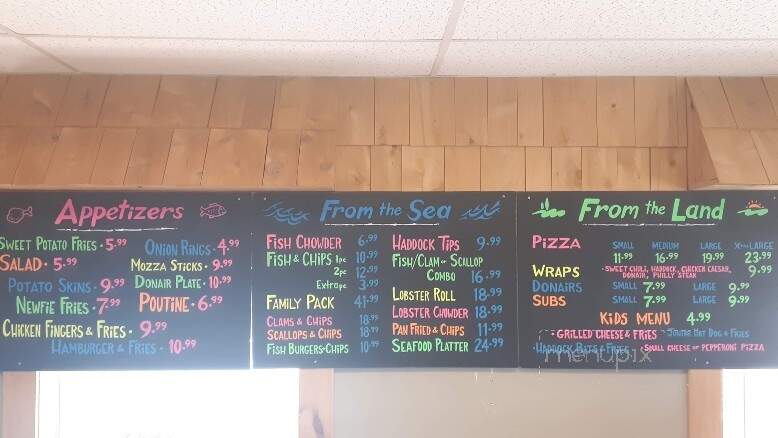 Appetizers
Sweet Potato Fries - 5.99
Onion Rings - 4.99
Salad - 5.99
Mozza Sticks - 9.99
Potato Skins - 9.99
Donair Plate - 10.99
Newfie Fries - 7.99
Poutine - 6.99
Chicken Fingers & Fries - 9.99
Hamburger & Fries - 10.99
From the Sea
Fish Chowder 6.99
Fish & Chips 1pc 10.99
2pc 12.99
Extra pc 3.99
Family Pack 41.99
Clams & Chips 18.99
Scallops & Chips 18.99
Fish Burgers-Chips 10.99
Haddock Tips 9.99
Fish/Clam or Scallop
Combo 16.99
Lobster Roll 18.99
Lobster Chowder 18.99
Pan Fried & Chips 11.99
Seafood Platter 24.99
From the Land
Small Medium Large X-Large
Pizza 11.99 16.99 19.99 23.99
Wraps - Sweet Chili, Haddock, Chicken Caesar, 9.99
Donair, Philly Steak
Donairs Small 7.99 Large 9.99
Subs Small 7.99 Large 9.99
Kids Menu 4.99
- Grilled Cheese & Fries - Jumbo Hot Dog & Fries
- Haddock Bits & Fries - Small Cheese or Pepperoni Pizza
menupix